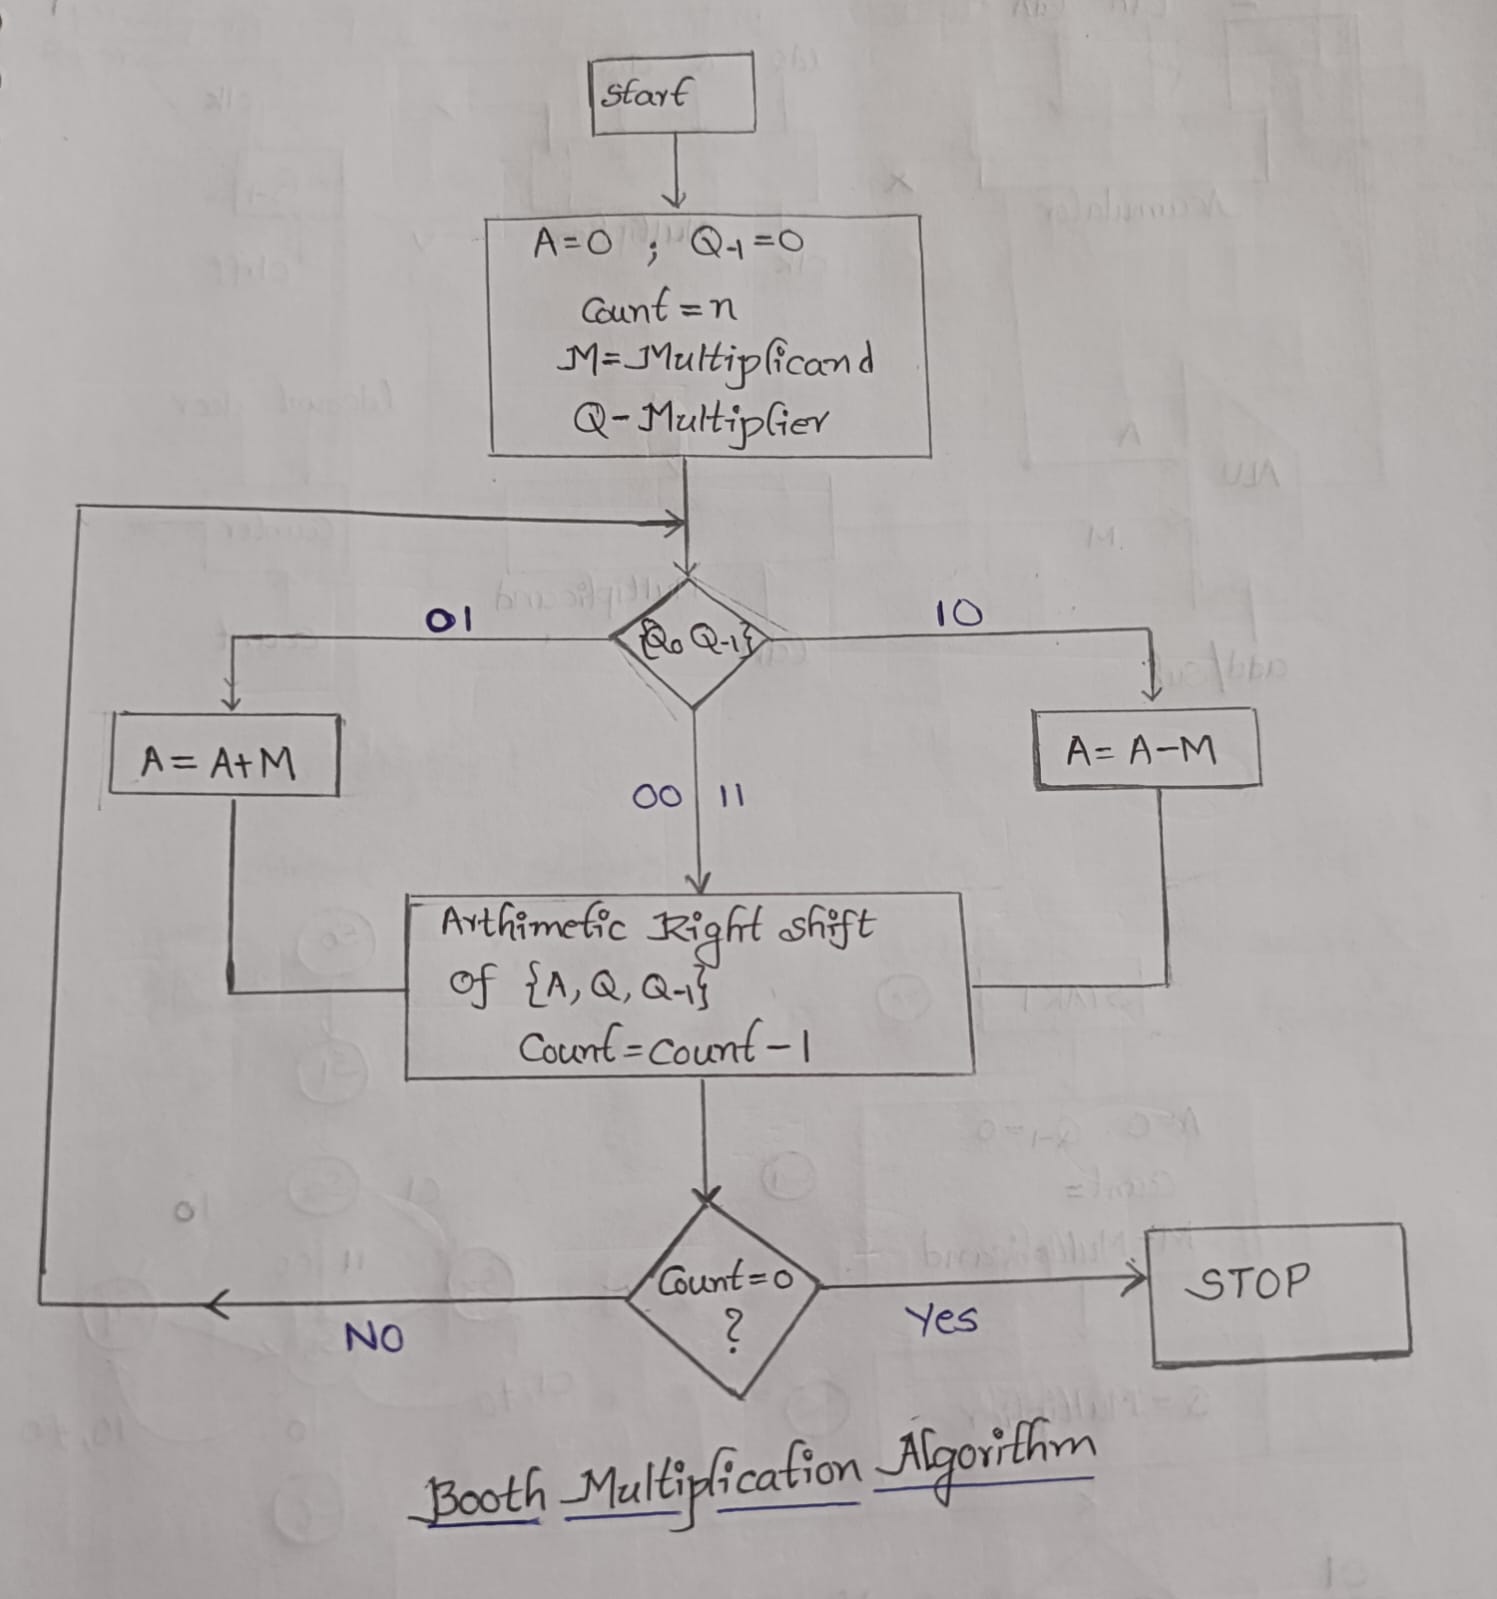 Start
A=0 ; Q-1=0
Count=n
M=Multiplicand
Q-Multiplier
01
{Q0 Q-1}
10
A=A+M
A=A-M
00 11
Arthimetic Right Shift
Of {A, Q, Q-1}
Count=Count-1
Count=0
?
NO
Yes
STOP
Booth Multiplication Algorithm